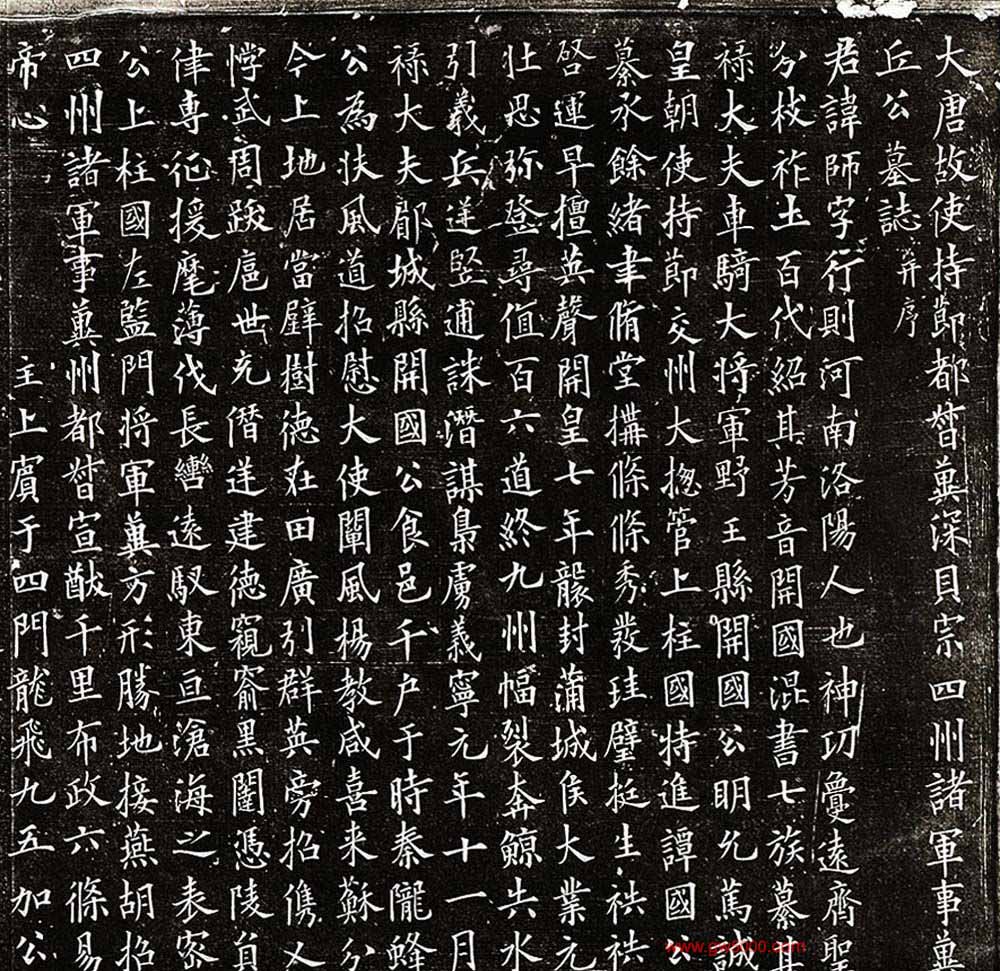 大唐故使持節都督兾深貝宗四州諸軍事兾
丘公墓誌并序
君諱師字行則河南洛陽人也神功疊遠齊聖
分枝祚土百代紹其芳音開國混書七族纂其
禄大夫車騎大将軍野王縣開國公明允篤誠
皇朝使持節交州大揔管上柱國特進譚國公
纂承餘緒聿脩堂搆條條秀發珪璧挺生祑祑
啓運早擅英聲開皇七年襲封蒲城侯大業元
壮思弥登尋值百六道終九州幅裂奔鯨共水
引義兵逆竪逋誅潛謀梟虜義寧元年十一月
禄大夫郿城縣開國公食邑千户于時秦隴蜂
公為扶風道招慰大使闡風楊教咸喜来蘇分
今上地居當璧樹德在田廣引群英旁招儁乂
悖武周跋扈世充僭逆建德窺窬黒闥憑陵自
律専征援麾薄伐長轡遠馭東亘滄海之表密
公上柱國左監門将軍兾方形勝地接燕胡招
四州諸軍事兾州都督宣猷千里布政六條易
帝心 主上賔于四門龍飛九五加公
www.gd5000.com